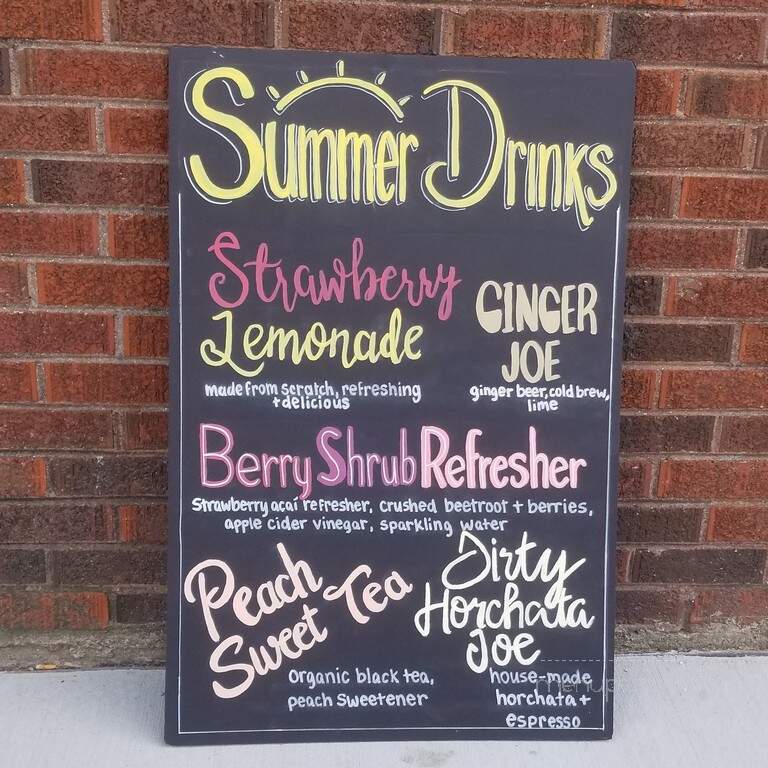 Summer Drinks
Strawberry
Lemonade
made from scratch, refreshing
+delicious
GINGER
JOE
ginger beer, cold brew,
lime
Berry Shrub Refresher
Strawberry açaí refresher, crushed beetroot + berries,
apple cider vinegar, sparkling water
Peach
Sweet Tea
Organic black tea,
peach sweetener
Dirty
Horchata
Joe
house-made
horchata +
espresso